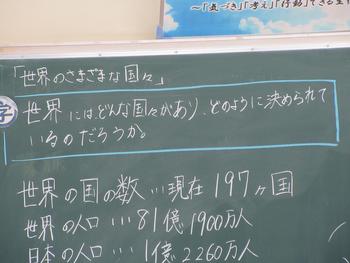 〜「気づき」「考え」「行動」できる生
「世界のさまざまな国々」
学
世界には、どんな国々があり、どのように決められて
いるのだろうか。
世界の国の数…現在197ヶ国
世界の人口…81億1900万人
日本の人口…1億2260万人